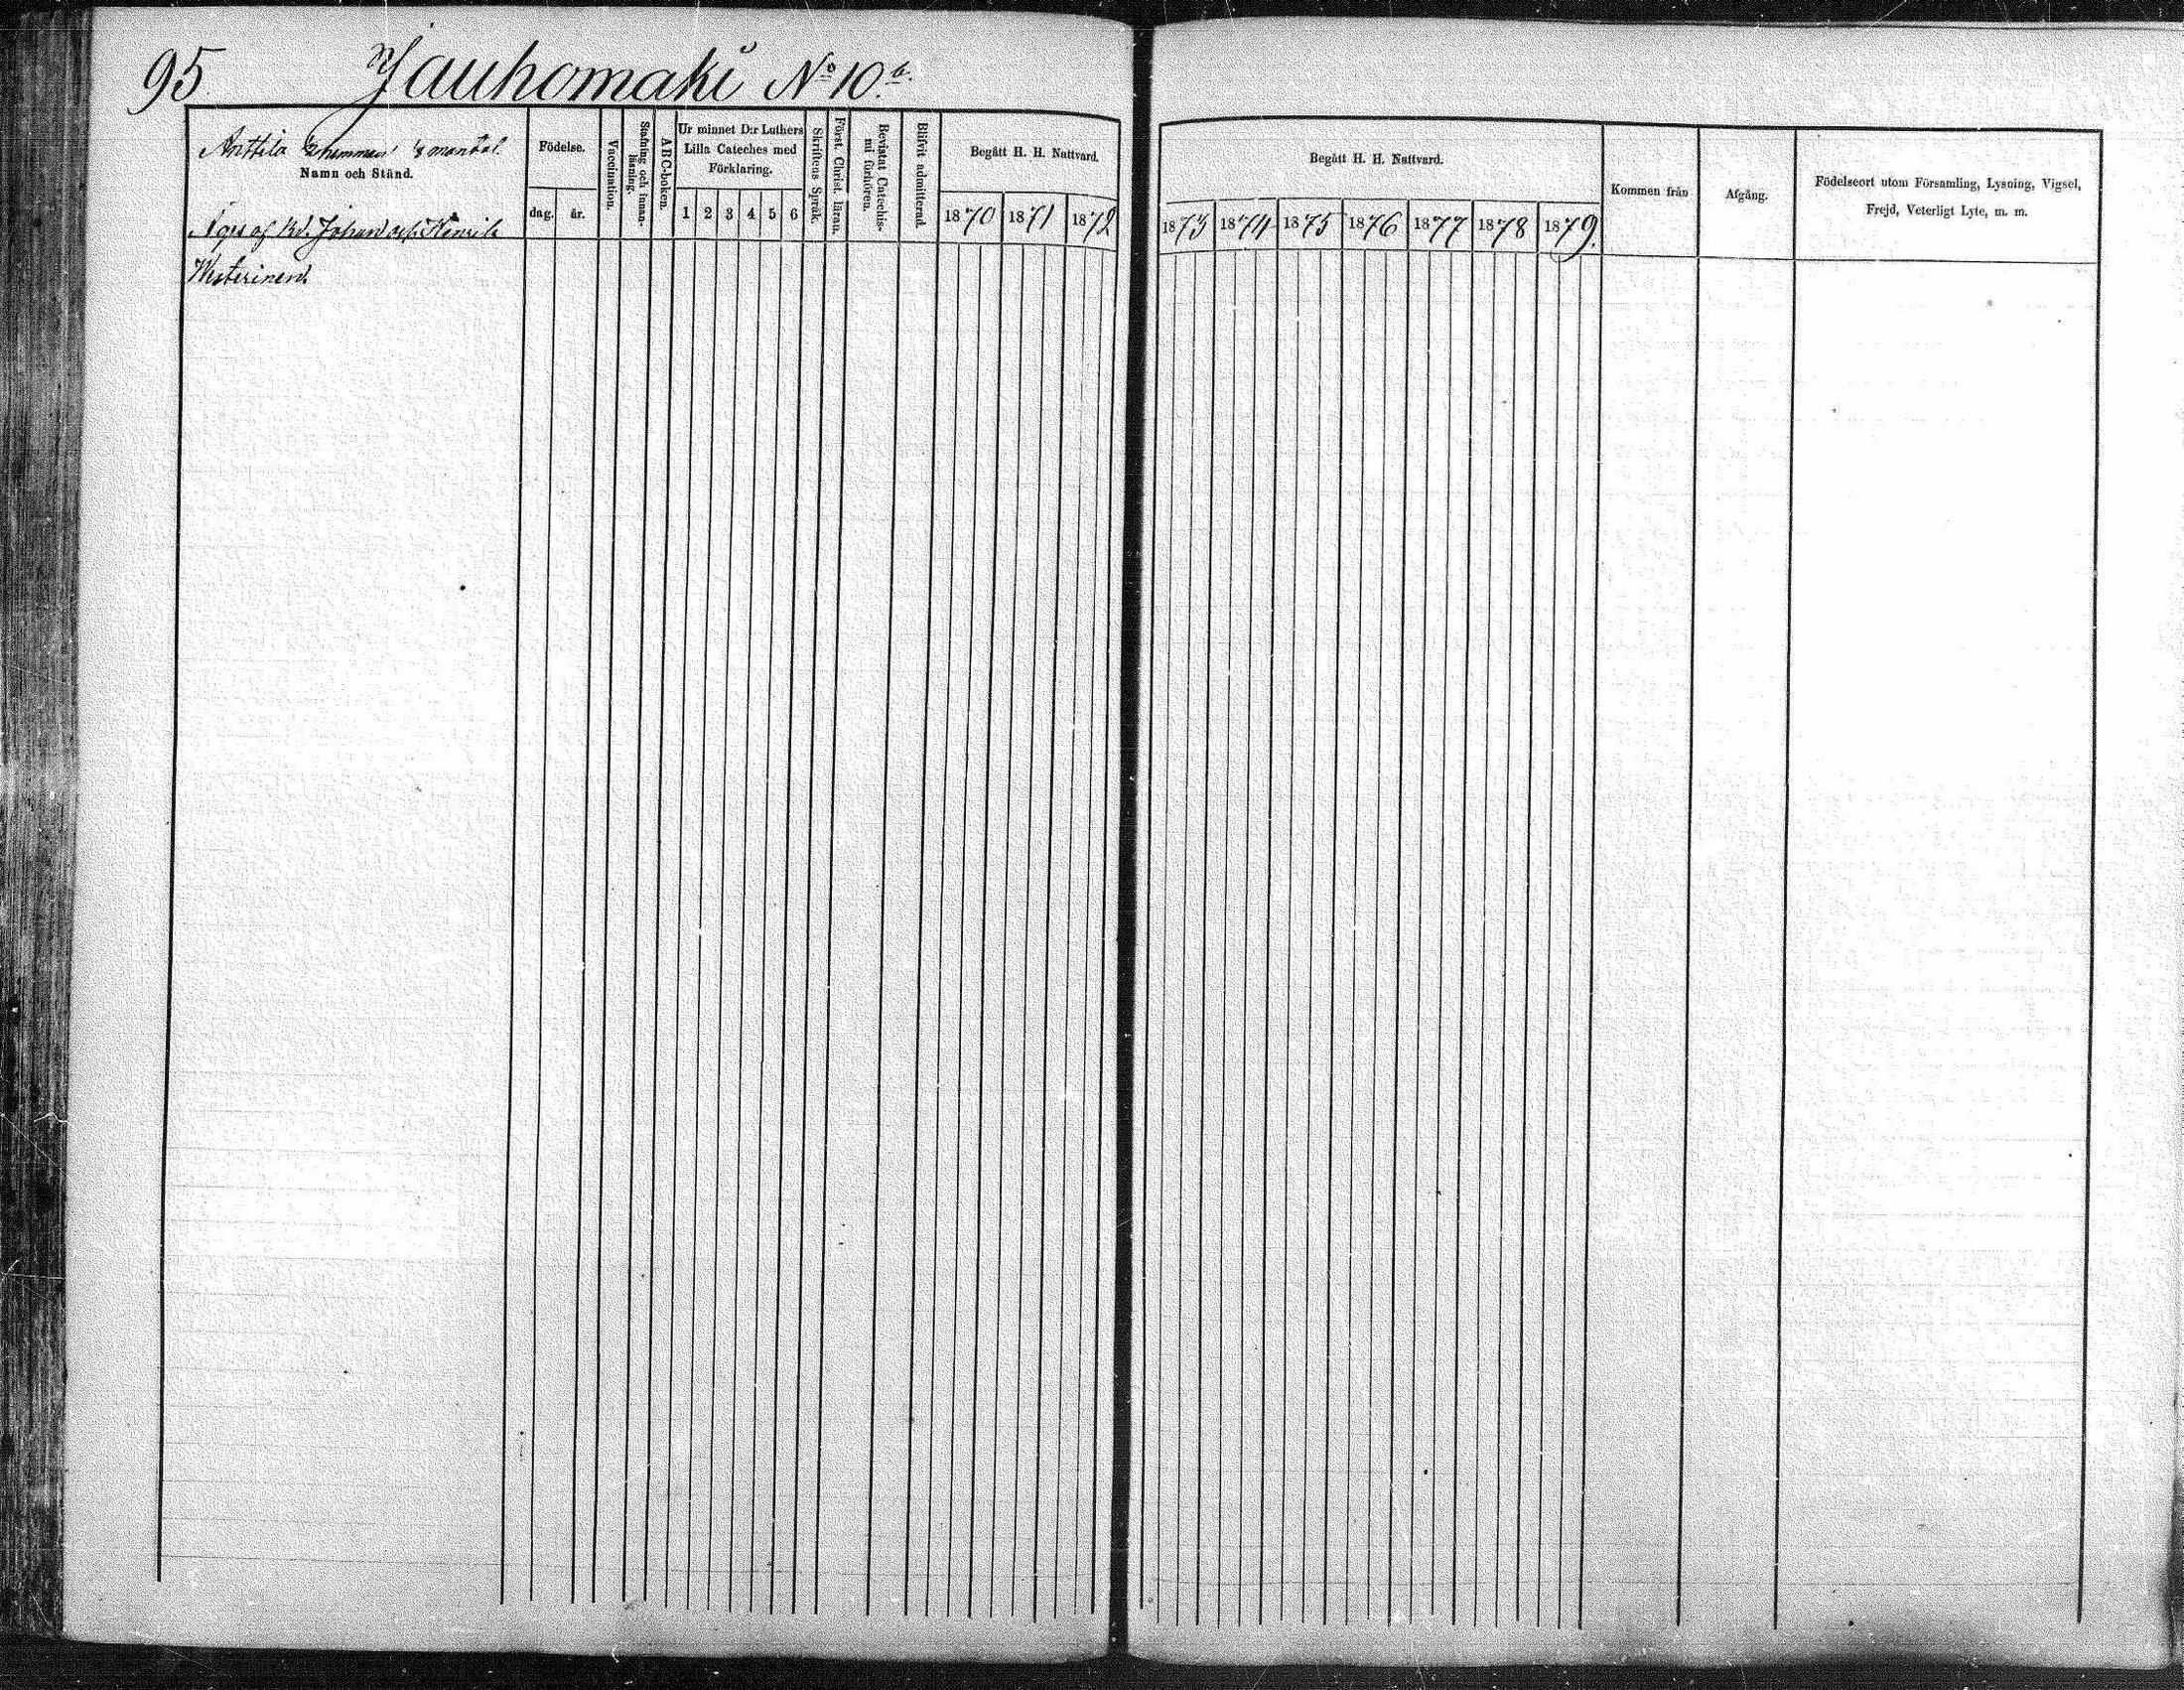 95.
Jauhomäki No 10 b.
Anttila 1/2 hemman 1/8 mantal.
Namn och Stånd.
Äges af Bd. Johan och Henrik
Westerinen.
Födelse.
dag. år.
Vaccination.
Stafning och innan-
läsning.
ABC-boken.
Ur minnet D:r Luthers
Lilla Cateches med
Förklaring.
1 2 3 4 5 6
Skriftens Språk.
Först. Christ. läran.
Bevistat Catechis-
mi förhören.
Blifvit admitterad.
Begått H. H. Nattvard.
1870 1871 1872
Begått H. H. Nattvard.
1873 1874 1875 1876 1877 1878 1879.
Kommen från
Afgång.
Födelseort utom Församling, Lysning, Vigsel,
Frejd, Veterligt Lyte, m. m.